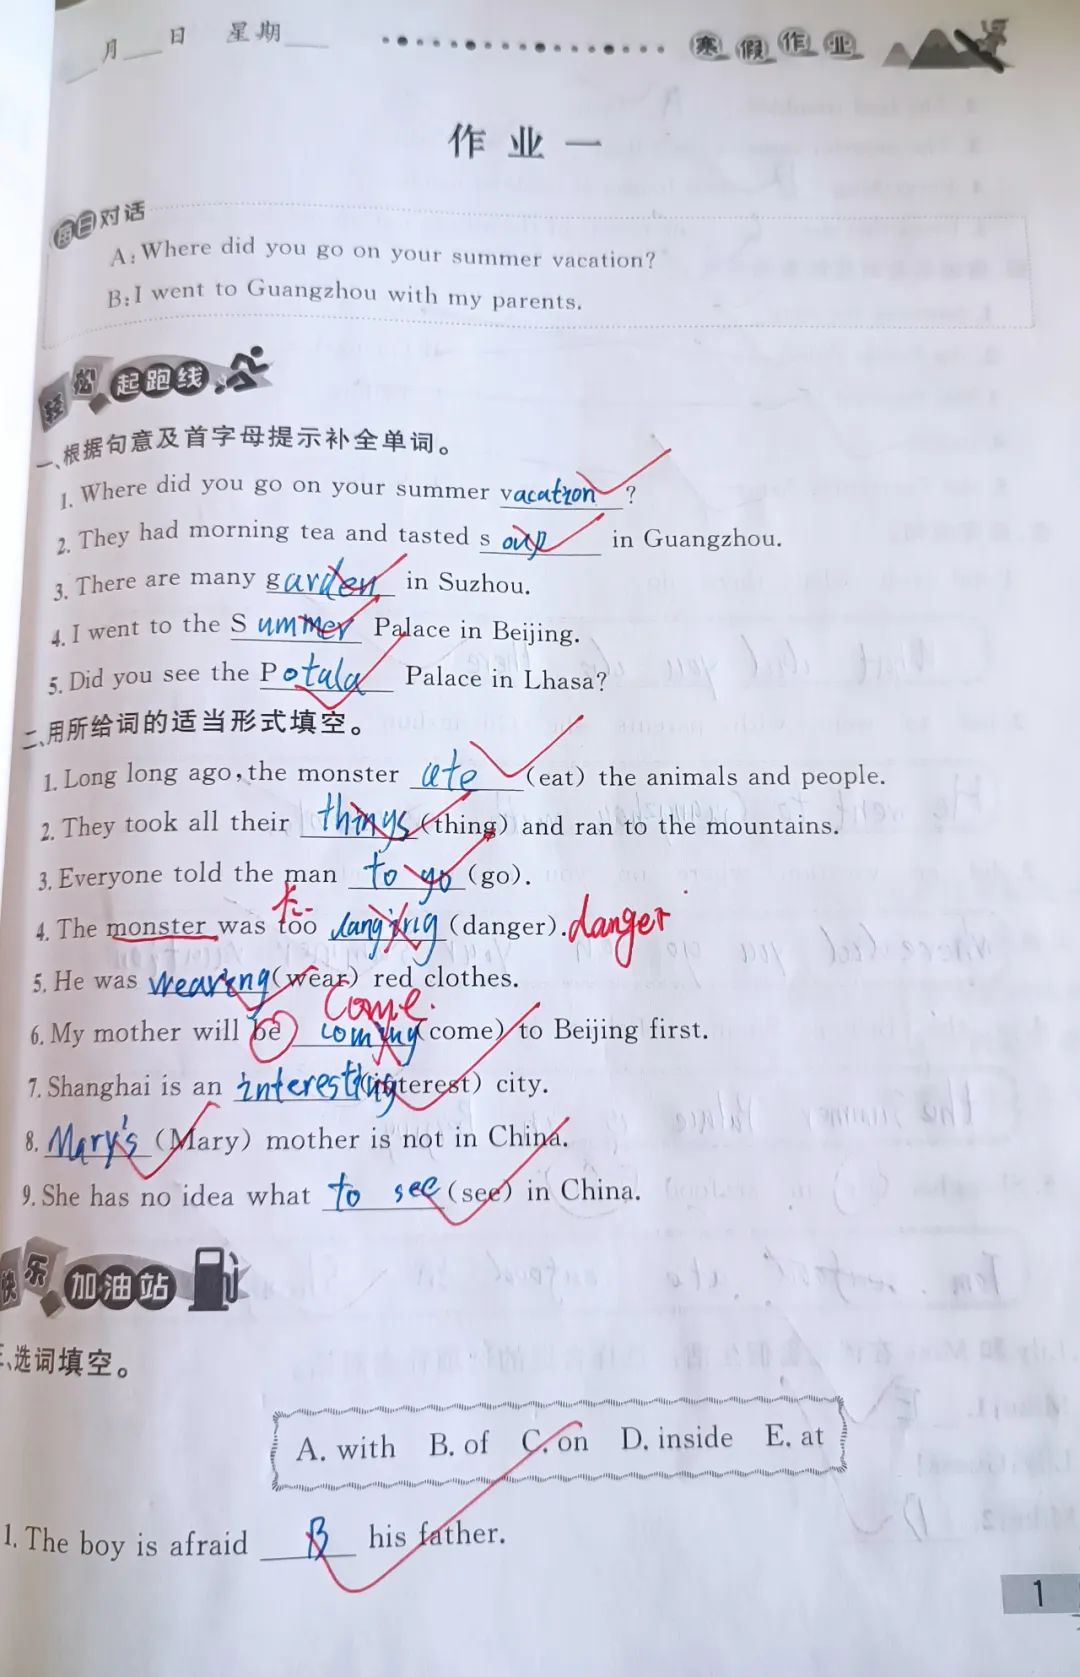 月 日 星期
寒假作业
作业一
每日对话
A:Where did you go on your summer vacation?
B:I went to Guangzhou with my parents.
轻松起跑线
一、根据句意及首字母提示补全单词。
1. Where did you go on your summer vacation ?
2. They had morning tea and tasted s oup in Guangzhou.
3. There are many garden in Suzhou.
4. I went to the S ummer Palace in Beijing.
5. Did you see the Potala Palace in Lhasa?
二、用所给词的适当形式填空。
1. Long long ago, the monster ate (eat) the animals and people.
2. They took all their things (thing) and ran to the mountains.
3. Everyone told the man to go (go).
4. The monster was too (danger). danger
5. He was wearing (wear) red clothes.
come.
6. My mother will be coming (come) to Beijing first.
7. Shanghai is an interesting (interest) city.
8. Mary's (Mary) mother is not in China.
9. She has no idea what to see (see) in China.
快乐加油站
三、选词填空。
A. with B. of C. on D. inside E. at
1. The boy is afraid B his father.
1